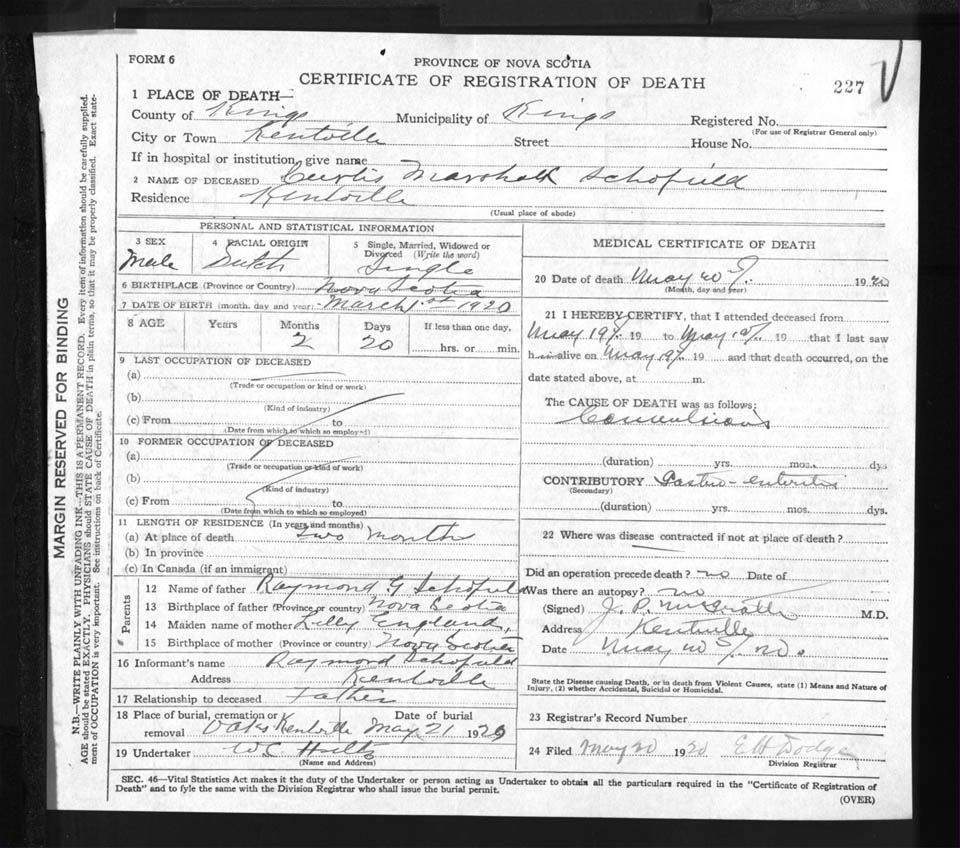 FORM 6
PROVINCE OF NOVA SCOTIA
CERTIFICATE OF REGISTRATION OF DEATH
227
1 PLACE OF DEATH—
County of Kings Municipality of Kings Registered No.
(For use of Registrar General only)
City or Town Kentville Street House No.
If in hospital or institution, give name
2 NAME OF DECEASED Curtis Marshall Schofield
Residence Kentville
(Usual place of abode)
PERSONAL AND STATISTICAL INFORMATION
3 SEX Male
4 RACIAL ORIGIN Dutch
5 Single, Married, Widowed or Divorced (Write the word) Single
6 BIRTHPLACE (Province or Country) Nova Scotia
7 DATE OF BIRTH (month, day and year) March 1st 1920
8 AGE Years Months Days If less than one day,
2 20 hrs. or min.
9 LAST OCCUPATION OF DECEASED
(a)
(Trade or occupation or kind or work)
(b)
(Kind of industry)
(c) From to
(Date from which to which so employed)
10 FORMER OCCUPATION OF DECEASED
(a)
(Trade or occupation or kind of work)
(b)
(Kind of industry)
(c) From to
(Date from which to which so employed)
11 LENGTH OF RESIDENCE (In years and months)
(a) At place of death two month
(b) In province
(c) In Canada (if an immigrant)
Parents
12 Name of father Raymond G Schofield
13 Birthplace of father (Province or country) Nova Scotia
14 Maiden name of mother Lilly England
15 Birthplace of mother (Province or country) Nova Scotia
16 Informant's name Raymond Schofield
Address Kentville
17 Relationship to deceased Father
18 Place of burial, cremation or removal Oaks Kentville Date of burial May 21 1920
19 Undertaker W C
(Name and Address)
MEDICAL CERTIFICATE OF DEATH
20 Date of death May 20 1920
(Month, day and year)
21 I HEREBY CERTIFY, that I attended deceased from
May 19 19 to May 19 that I last saw
h alive on May 19 19 and that death occurred, on the
date stated above, at m.
The CAUSE OF DEATH was as follows:
Convulsions
(duration) yrs. mos. dys
CONTRIBUTORY Gastro-enteritis
(Secondary)
(duration) yrs. mos. dys.
22 Where was disease contracted if not at place of death?
Did an operation precede death? no Date of
Was there an autopsy? no
(Signed) J. P. M.D.
Address Kentville
Date May 20 20
State the Disease causing Death, or in death from Violent Causes, state (1) Means and Nature of
Injury, (2) whether Accidental, Suicidal or Homicidal.
23 Registrar's Record Number
24 Filed May 20 1920 E H Dodge
Division Registrar
SEC. 46—Vital Statistics Act makes it the duty of the Undertaker or person acting as Undertaker to obtain all the particulars required in the "Certificate of Registration of
Death" and to fyle the same with the Division Registrar who shall issue the burial permit.
(OVER)
MARGIN RESERVED FOR BINDING
N.B.—WRITE PLAINLY WITH UNFADING INK—THIS IS A PERMANENT RECORD. Every item of information should be carefully supplied.
AGE should be stated EXACTLY. PHYSICIANS should STATE CAUSE OF DEATH in plain terms, so that it may be properly classified. Exact state-
ment of OCCUPATION is very important. See instructions on back of Certificate.